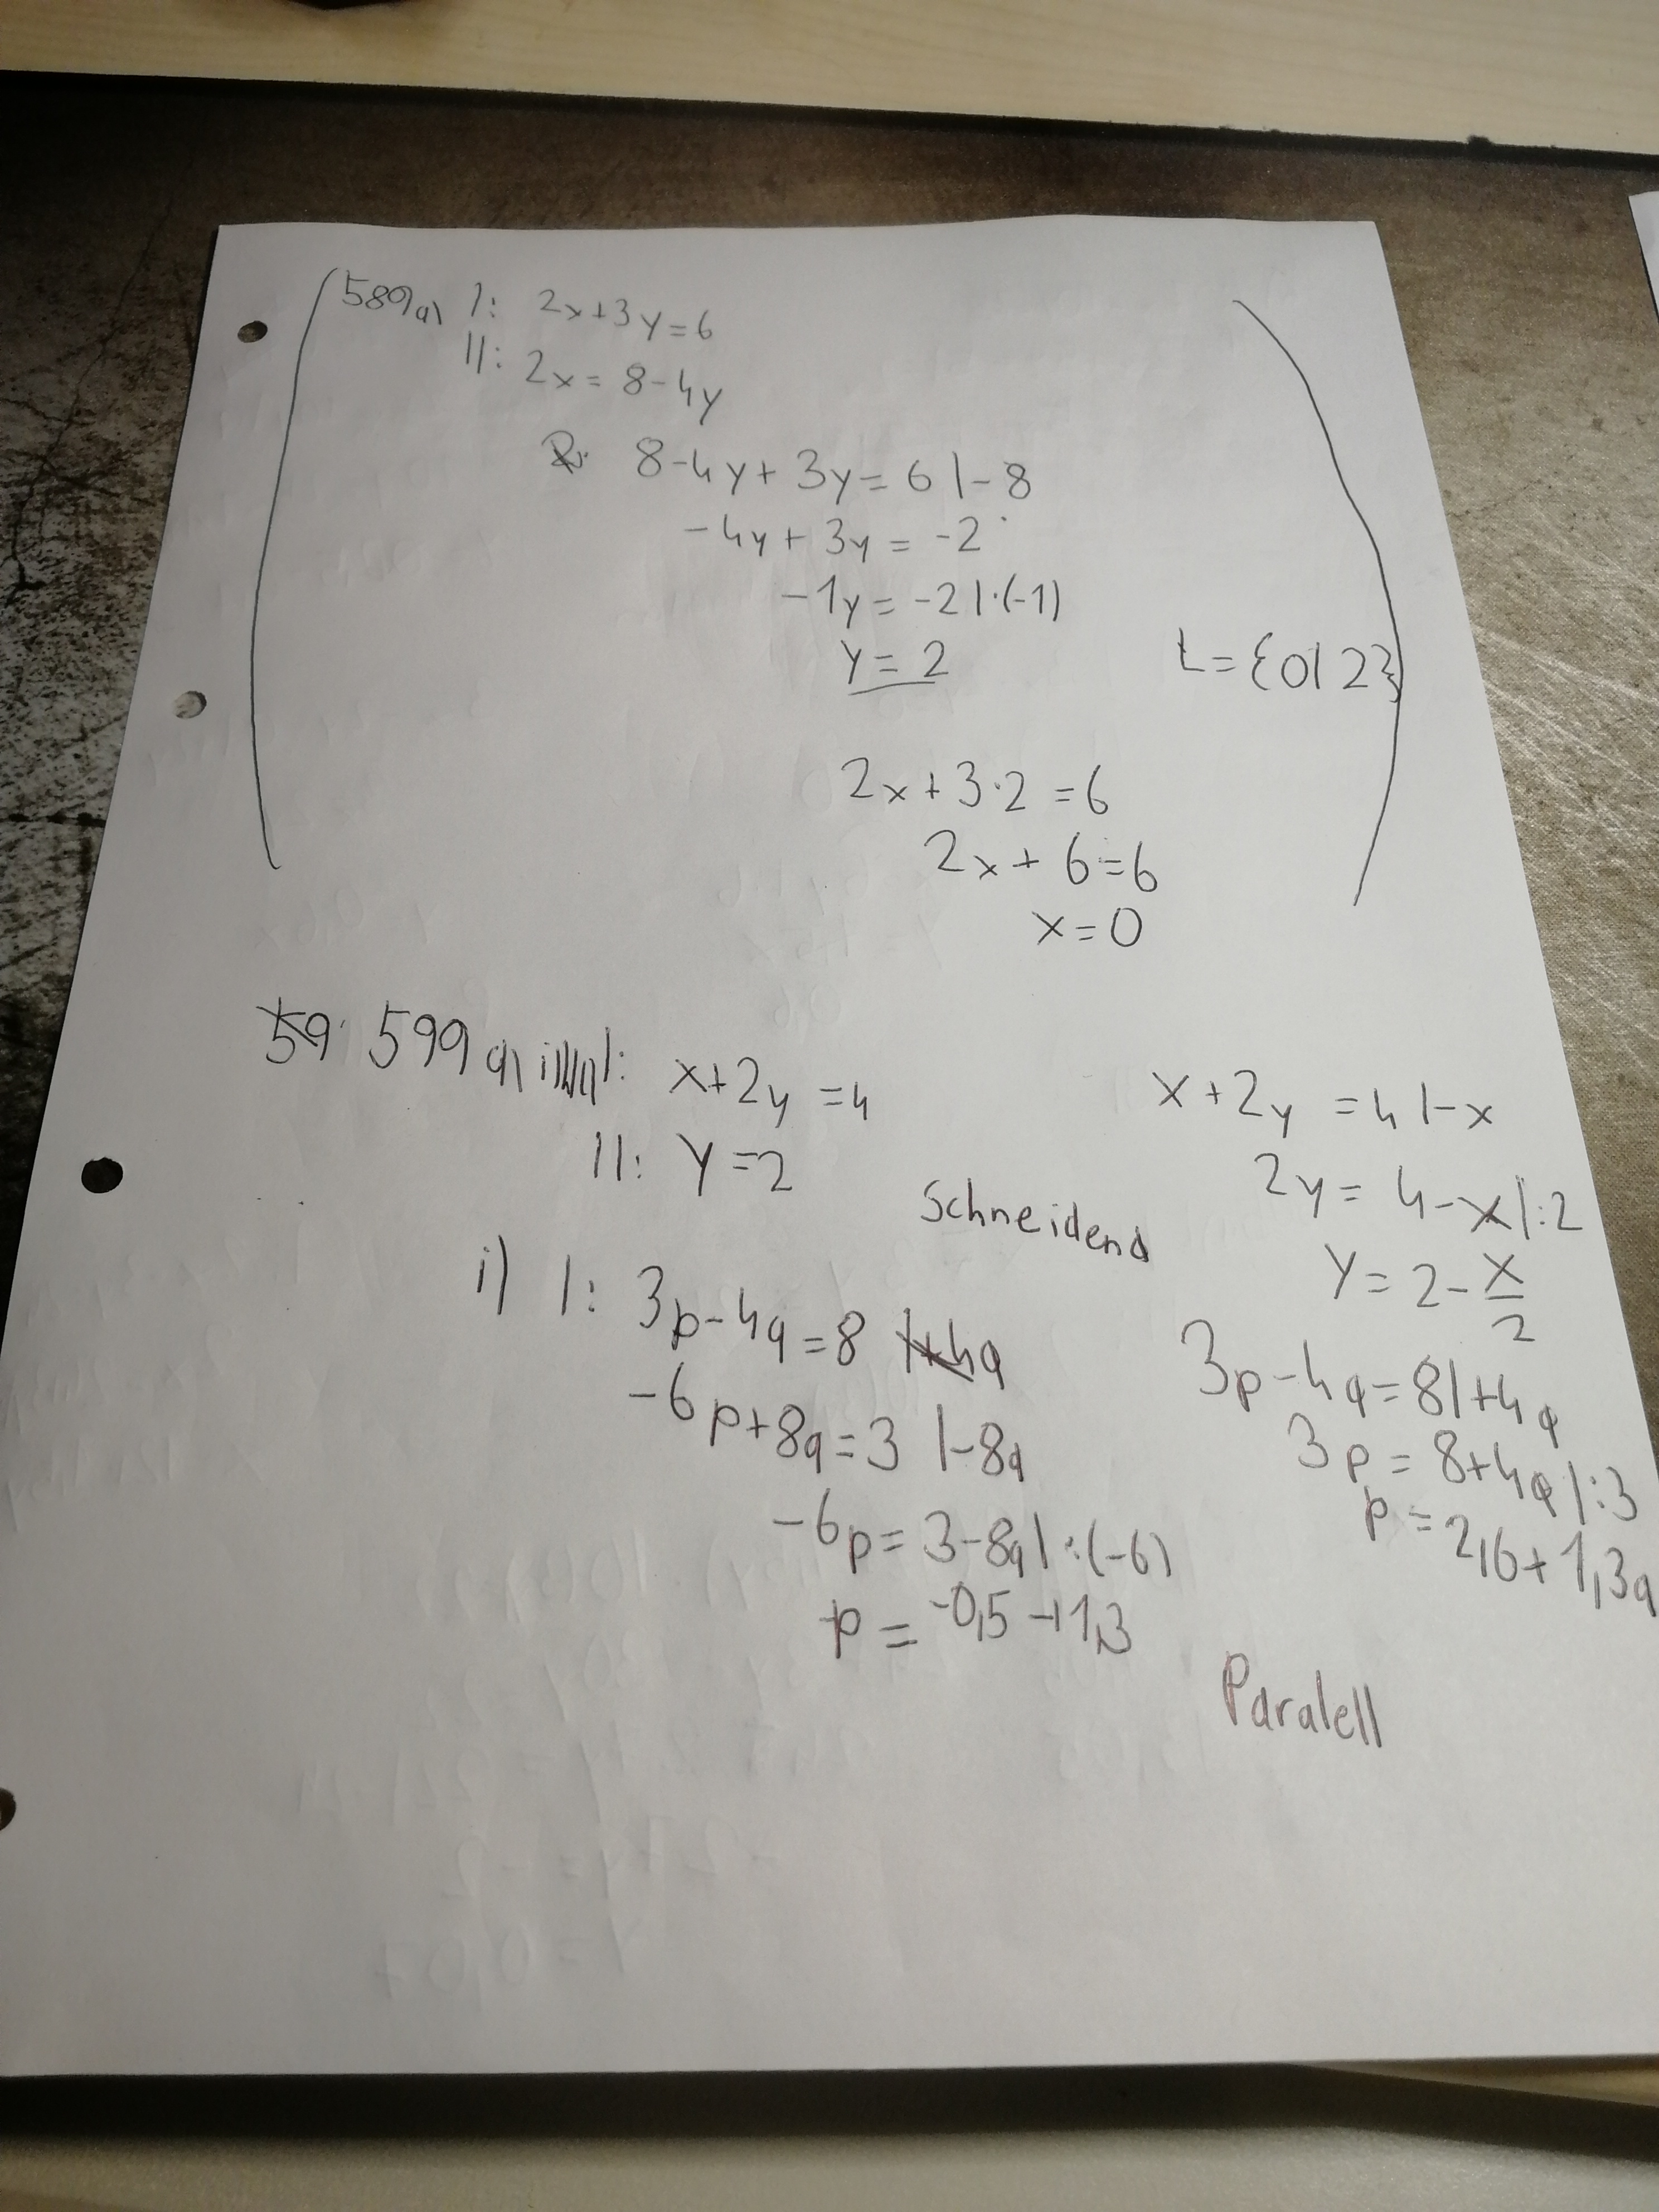 589a) I: 2x+3y=6
II: 2x= 8-4y
8-4y+3y=6 |-8
-4y+3y = -2
-1y = -2 |·(-1)
y=2
L={0|2}
2x+3·2=6
2x+6=6
x=0
599 a) I: x+2y=4
II: y=2
x+2y=4 |-x
2y=4-x |:2
y=2-x/2
Schneidend
i) I: 3p-4q=8
-6p+8q=3 |-8q
-6p=3-8q |:(-6)
p=-0,5+1,3
3p-4q=8 |+4q
3p=8+4q |:3
p=2,6+1,3q
Paralell